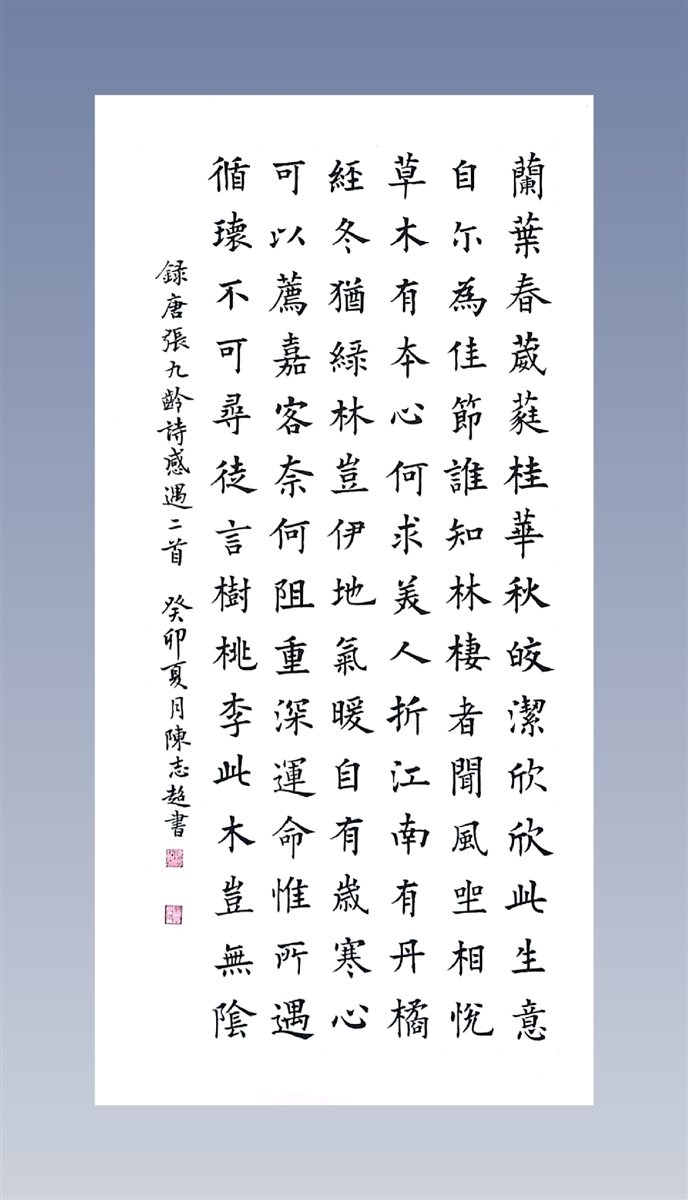 蘭葉春葳蕤桂華秋皎潔欣欣此生意
自尓為佳節誰知林棲者聞風坐相悅
草木有本心何求美人折江南有丹橘
経冬猶緑林豈伊地氣暖自有歲寒心
可以薦嘉客奈何阻重深運命惟所遇
循環不可尋徒言樹桃李此木豈無陰
録唐張九齡詩感遇二首 癸卯夏月陳志超書